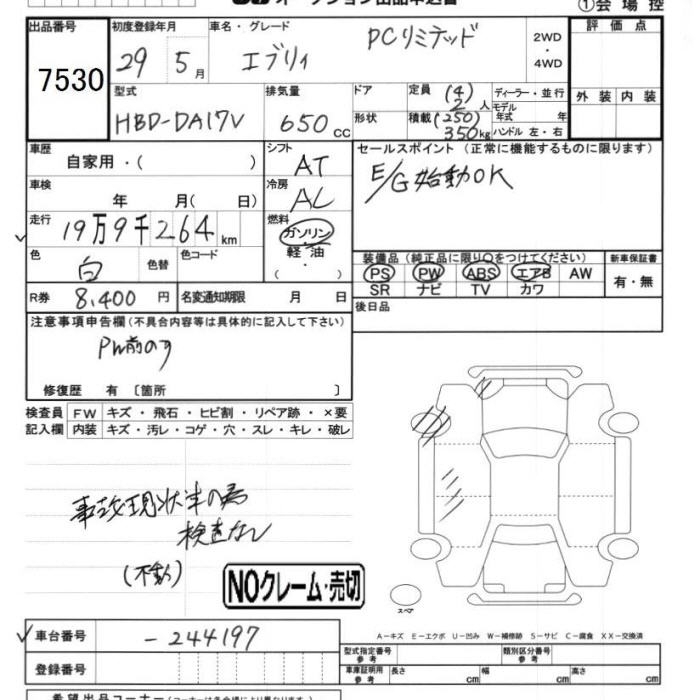 オークション出品申込書
①会場控
出品番号
7530
初度登録年月
29年5月
車名・グレード
エブリィ PCリミテッド
2WD
・
4WD
評価点
外装 内装
型式
HBD-DA17V
排気量
650cc
ドア
形状
定員 (4) 2人
積載 (250) 350kg
ディーラー・並行
モデル年式 年
ハンドル 左・右
車歴
自家用・( )
シフト
AT
セールスポイント (正常に機能するものに限ります)
E/G始動OK
車検
年 月( 日)
冷房
AC
走行
19万9千264km
燃料
ガソリン
軽・油
・( )
色
白
色替
色コード
装備品 (純正品に限り○をつけてください)
PS PW ABS エアB AW
SR ナビ TV カワ
新車保証書
有・無
R券
8,400円
名変通知期限 月 日
後日品
注意事項申告欄 (不具合内容等は具体的に記入して下さい)
PW前のみ
修復歴 有 〔箇所 〕
検査員 FW キズ・飛石・ヒビ割・リペア跡・×要
記入欄 内装 キズ・汚レ・コゲ・穴・スレ・キレ・破レ
事故現状車の為
検査なし
(不動)
NOクレーム・売切
スペア
A−キズ E−エクボ U−凹み W−補修跡 S−サビ C−腐食 XX−交換済
車台番号
-244197
登録番号
型式指定番号 参考
類別区分番号 参考
車庫証明用 参考 長さ cm 幅 cm 高さ cm
希望出品コーナー